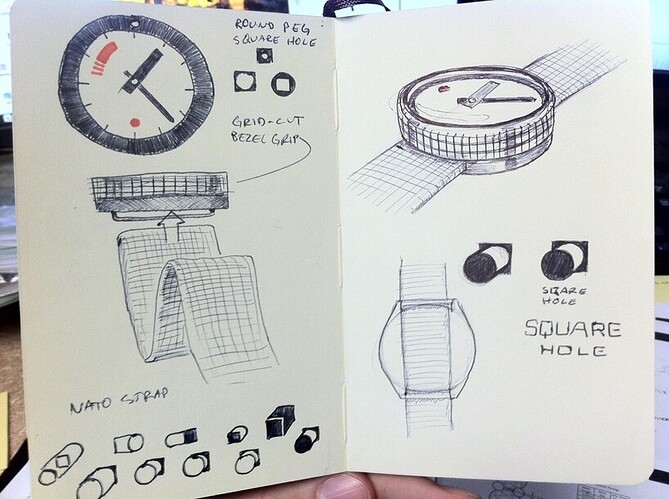 ROUND PEG
SQUARE HOLE
GRID-CUT
BEZEL GRIP
NATO STRAP
SQARE
HOLE
SQUARE
HOLE